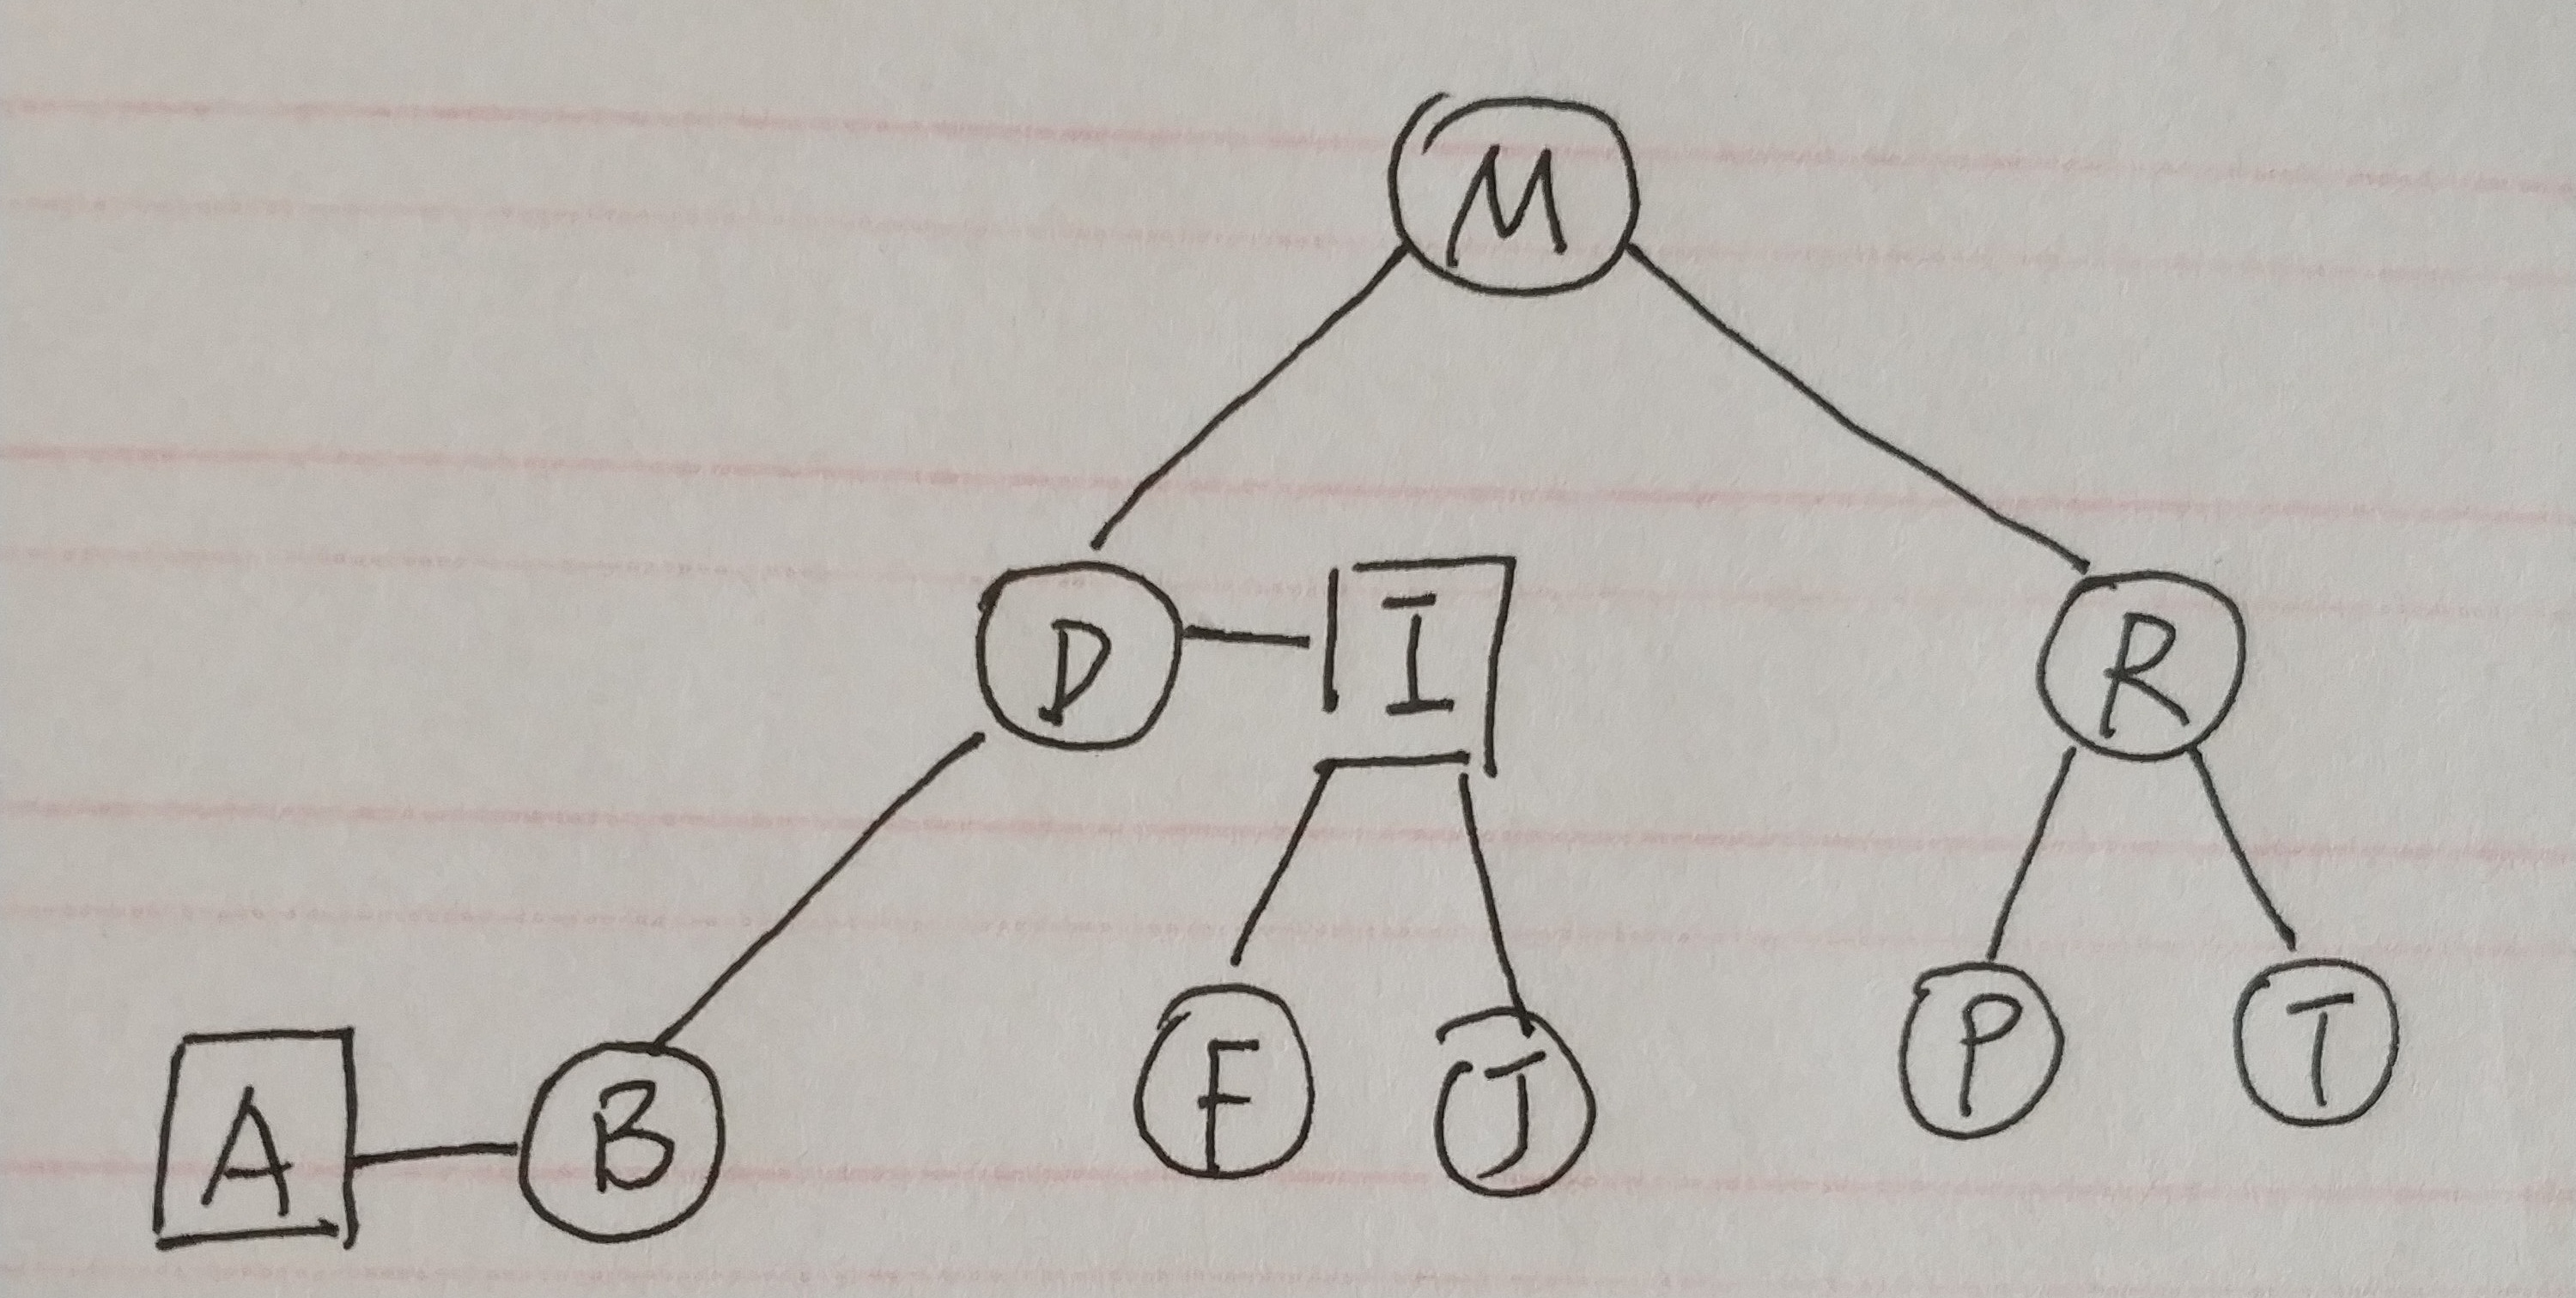 M
D I R
A B F J P T